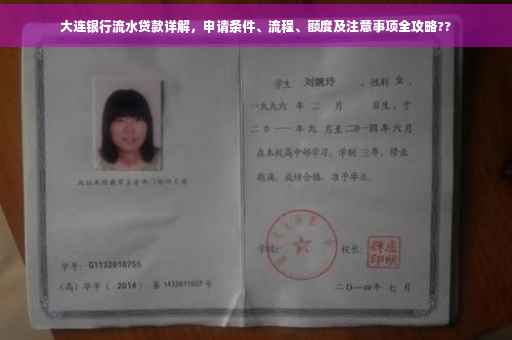 大连银行流水贷款详解，申请条件、流程、额度及注意事项全攻略??
学生 刘婉玲 ，性别 女 ，
一九九六 年 二 月 日生，于
二0一一 年 九 月至 二0一四 年 六 月
在本校高中部学习，学制 三 年，修业
期满，成绩合格，准予毕业。
学号: G1132010755
(高) 毕字 ( 2014 ) 第 1432011007 号
学校:
校长:
二〇一四年 七 月